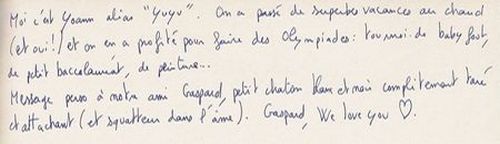 Moi c'est Yoann alias "YuYu". On a passé de superbes vacances au chaud
(et oui!) et on en a profité pour faire des Olympiades: tournoi de baby foot,
de petit baccalauréat, de peinture...
Message perso à notre ami Gaspard, petit chaton blanc et noir complètement taré
et attachant (et squatteur dans l'âme). Gaspard, We love you ♡.